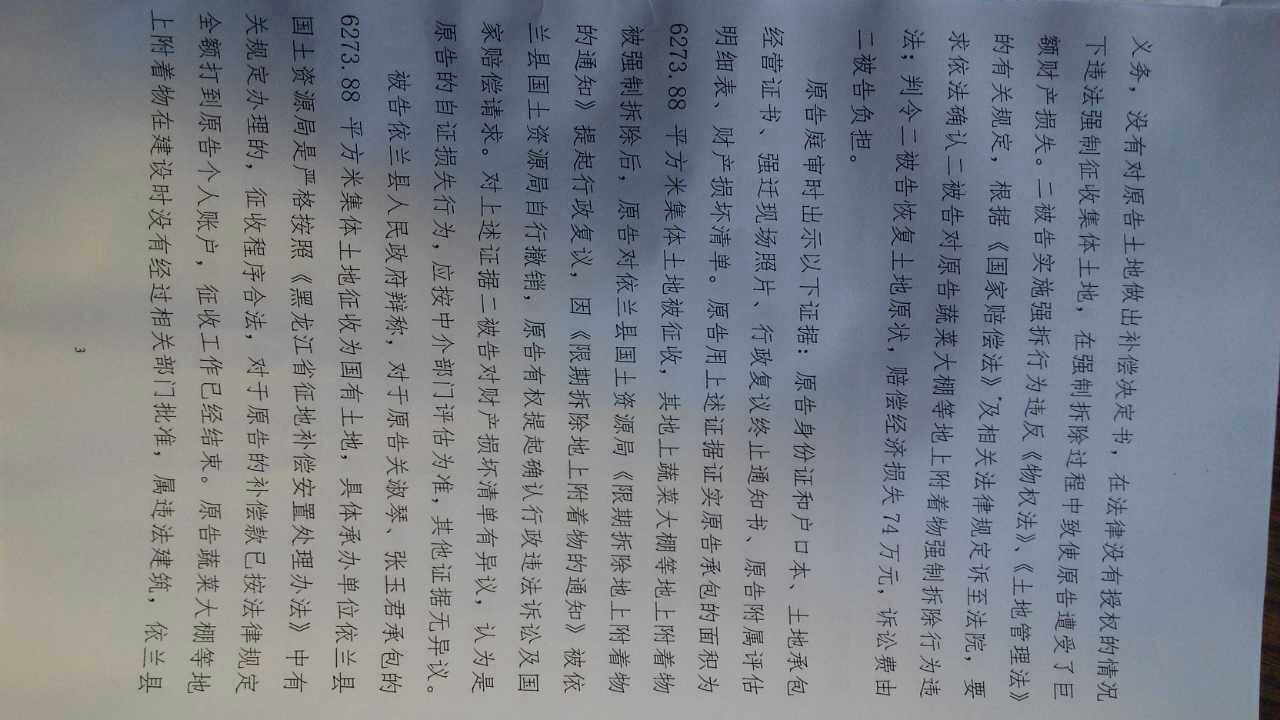 义务，没有对原告土地做出补偿决定书，在法律没有授权的情况
下违法强制征收集体土地，在强制拆除过程中致使原告遭受了巨
额财产损失。二被告实施强拆行为违反《物权法》、《土地管理法》
的有关规定，根据《国家赔偿法》及相关法律规定诉至法院，要
求依法确认二被告对原告蔬菜大棚等地上附着物强制拆除行为违
法；判令二被告恢复土地原状，赔偿经济损失74万元，诉讼费由
二被告负担。
原告庭审时出示以下证据：原告身份证和户口本、土地承包
经营证书、强迁现场照片、行政复议终止通知书、原告附属评估
明细表、财产损坏清单。原告用上述证据证实原告承包的面积为
6273.88 平方米集体土地被征收，其地上蔬菜大棚等地上附着物
被强制拆除后，原告对依兰县国土资源局《限期拆除地上附着物
的通知》提起行政复议，因《限期拆除地上附着物的通知》被依
兰县国土资源局自行撤销，原告有权提起确认行政违法诉讼及国
家赔偿请求。对上述证据二被告对财产损坏清单有异议，认为是
原告的自证损失行为，应按中介部门评估为准，其他证据无异议。
被告依兰县人民政府辩称，对于原告关淑琴、张玉君承包的
6273.88 平方米集体土地征收为国有土地，具体承办单位依兰县
国土资源局是严格按照《黑龙江省征地补偿安置处理办法》中有
关规定办理的，征收程序合法，对于原告的补偿款已按法律规定
全额打到原告个人账户，征收工作已经结束。原告蔬菜大棚等地
上附着物在建设时没有经过相关部门批准，属违法建筑，依兰县
3